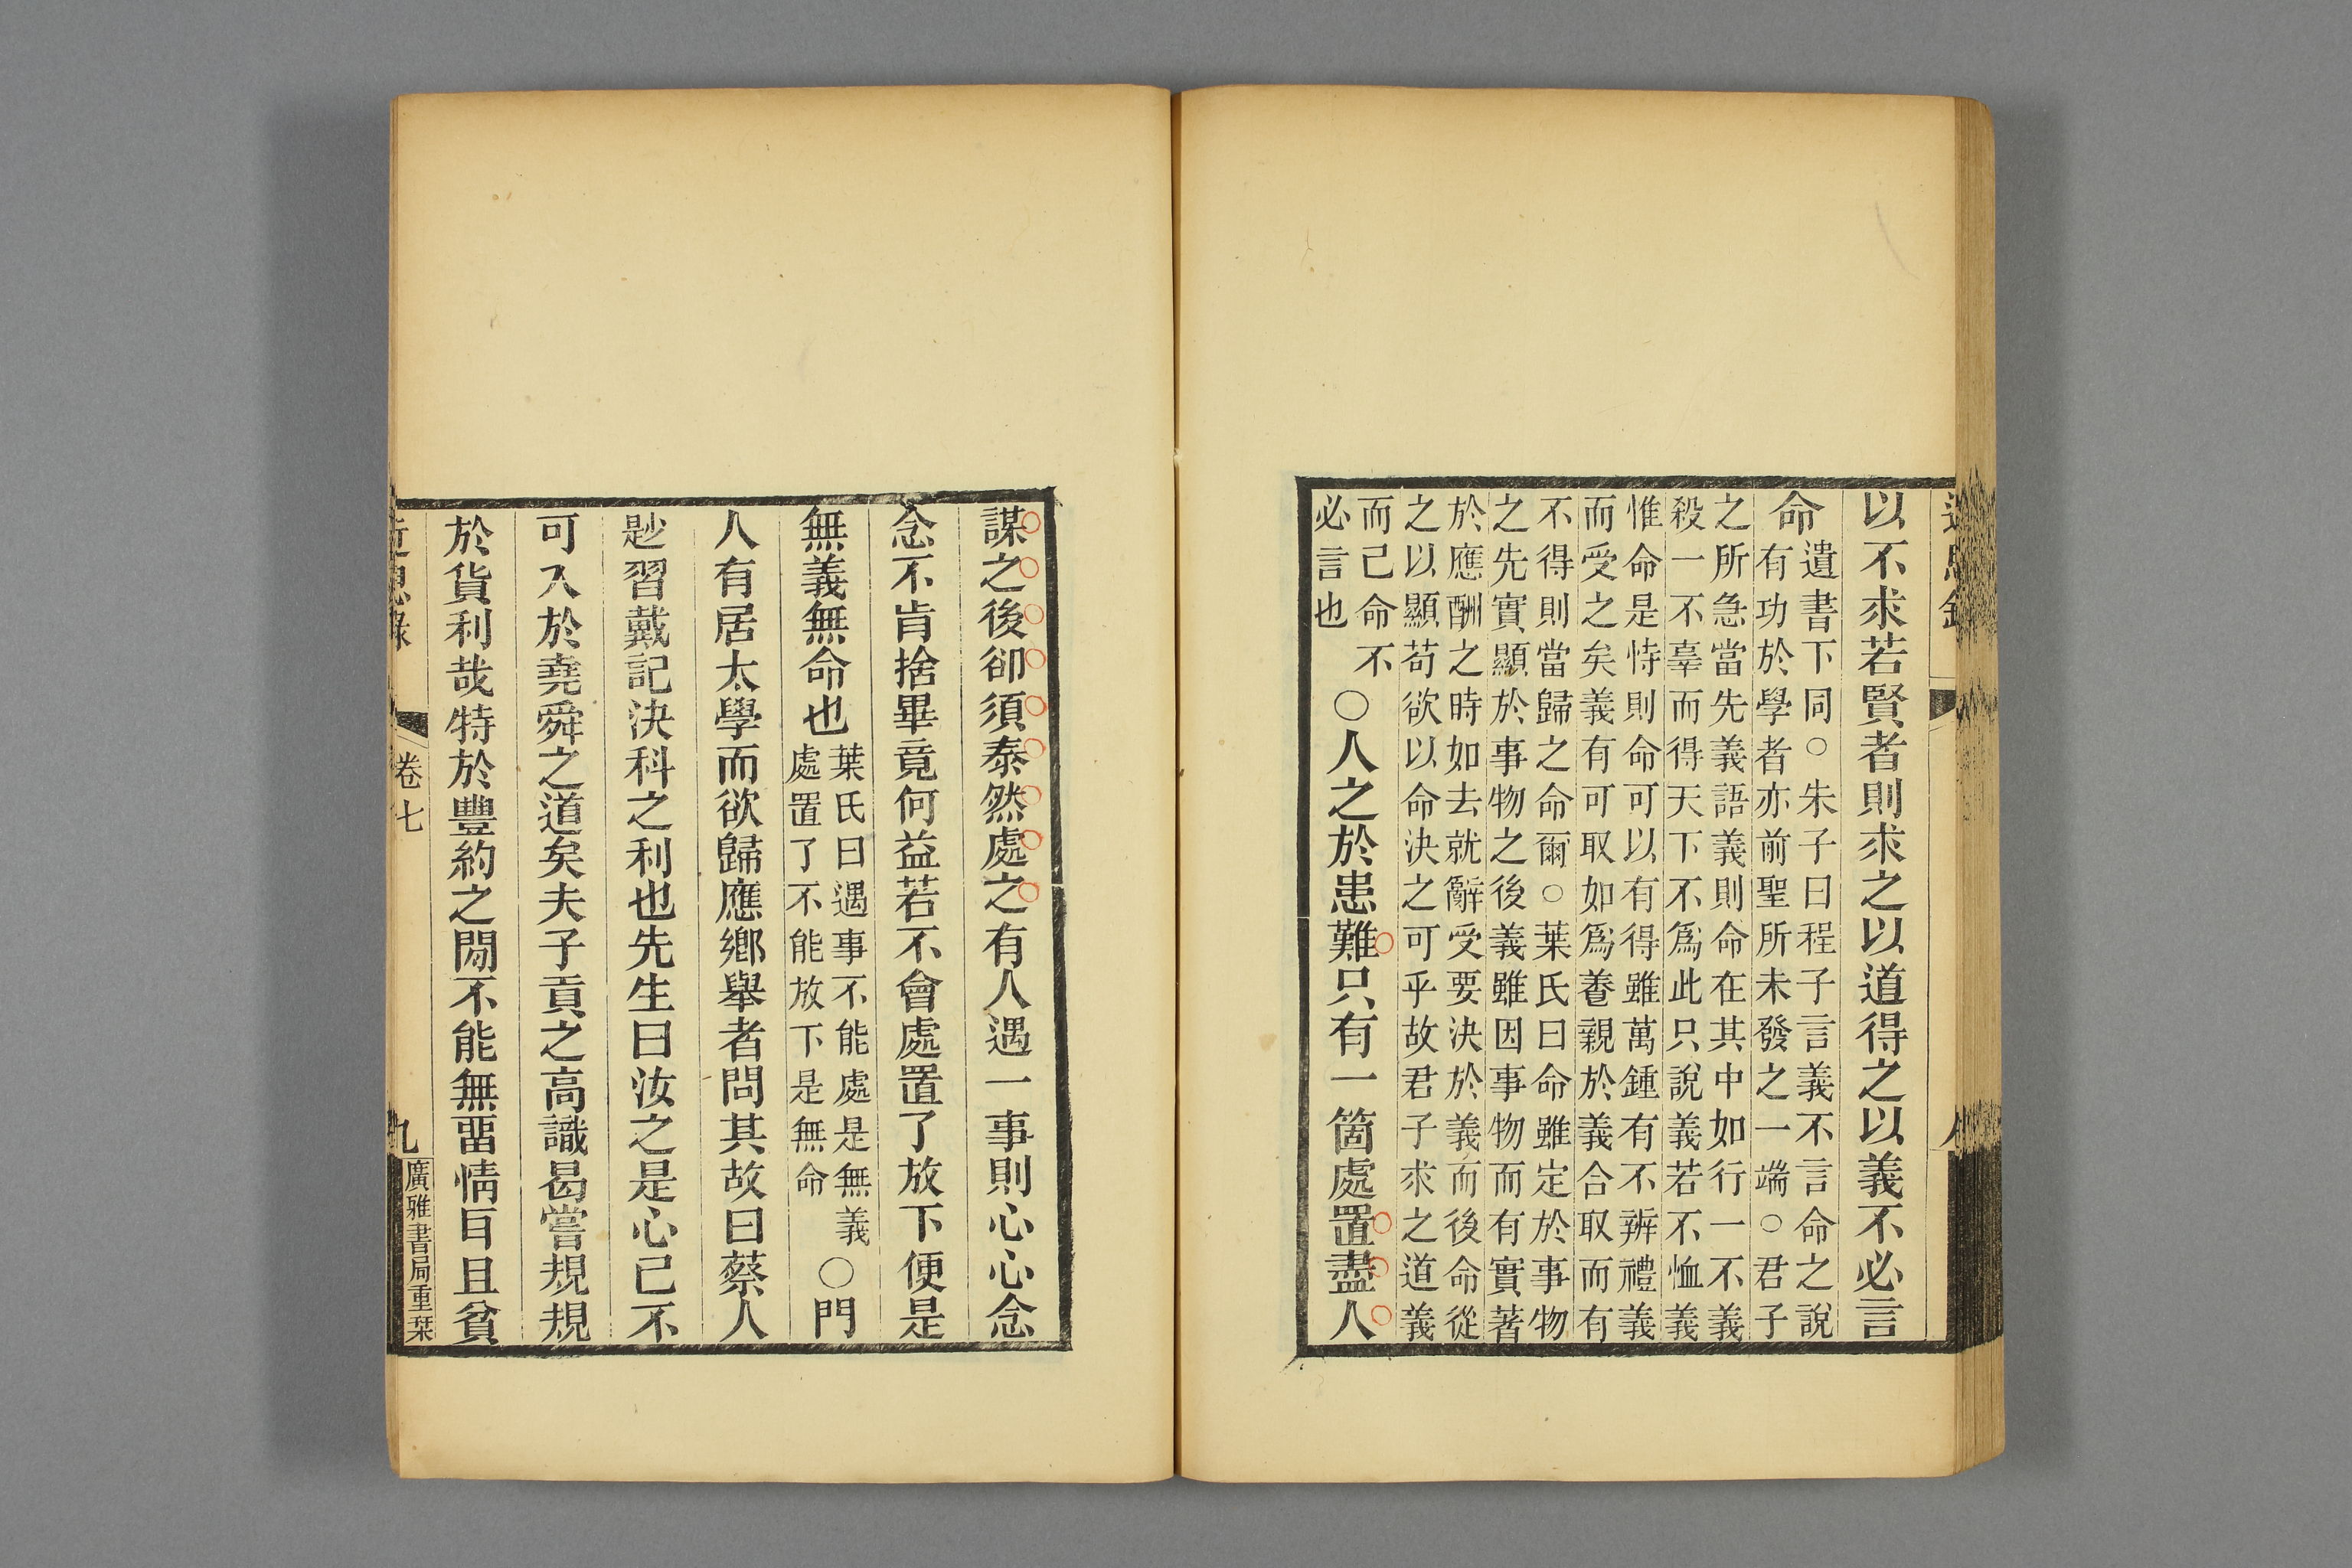 近思錄
以不求若賢者則求之以道得之以義不必言
命
遺書下同○朱子曰程子言義不言命之說
有功於學者亦前聖所未發之一端○君子
之所急當先義語義則命在其中如行一不義
殺一不辜而得天下不爲此只說義若不恤義
惟命是恃則命可以有得雖萬鍾有不辨禮義
而受之矣義有可取如爲養親於義合取而有
不得則當歸之命爾○葉氏曰命雖定於事物
之先實顯於事物之後義雖因事物而有實著
於應酬之時如去就辭受要決於義而後命從
之以顯苟欲以命決之可乎故君子求之道義
而已命不
必言也
○人之於患難只有一箇處置盡人
謀之後卻須泰然處之有人遇一事則心心念
念不肯捨畢竟何益若不會處置了放下便是
無義無命也
葉氏曰遇事不能處是無義
處置了不能放下是無命
○門
人有居太學而欲歸應鄉舉者問其故曰蔡人
尟習戴記決科之利也先生曰汝之是心已不
可入於堯舜之道矣夫子貢之高識曷嘗規規
於貨利哉特於豐約之閒不能無畱情耳且貧
近思錄
卷七
九
廣雅書局重栞